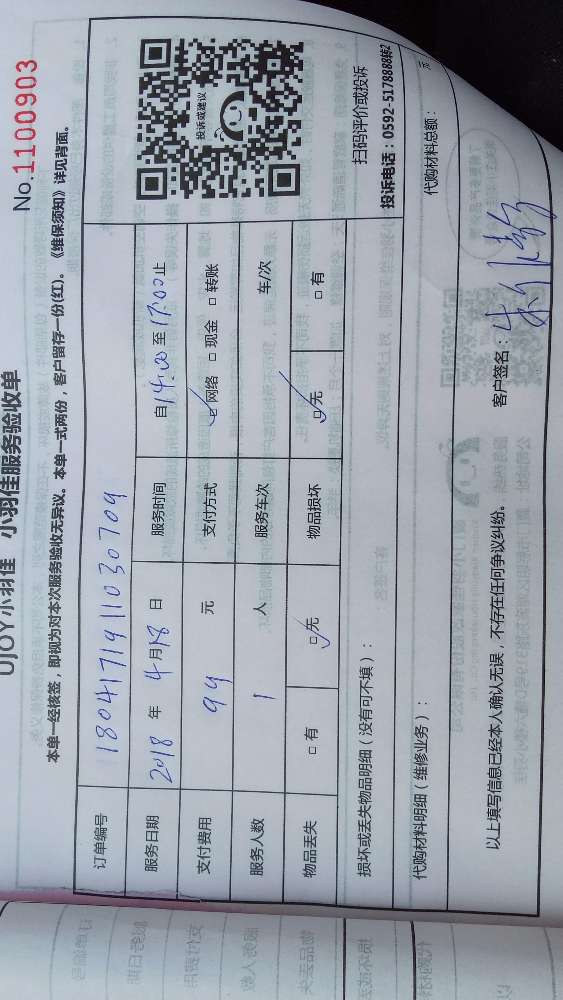 UJOY小羽佳 小羽佳服务验收单
No.1100903
本单一经核签，即视为对本次服务验收无异议。本单一式两份，客户留存一份(红)。《维保须知》详见背面。
订单编号 1804171911030709
服务日期 2018 年 4 月 18 日 服务时间 自 14:00 至 17:00 止
支付费用 99 元 支付方式 ☑ 网络 □ 现金 □ 转账
服务人数 1 人 服务车次 车/次
物品丢失 □ 有 ☑ 无 物品损坏 ☑ 无 □ 有
投诉或建议
扫码评价或投诉
投诉电话：0592-5178888转2
损坏或丢失物品明细（没有可不填）：
代购材料明细（维修业务）： 代购材料总额： 元
以上填写信息已经本人确认无误，不存在任何争议纠纷。 客户签名：